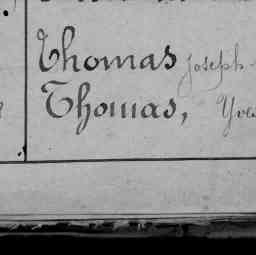 Thomas Joseph
Thomas, Yves